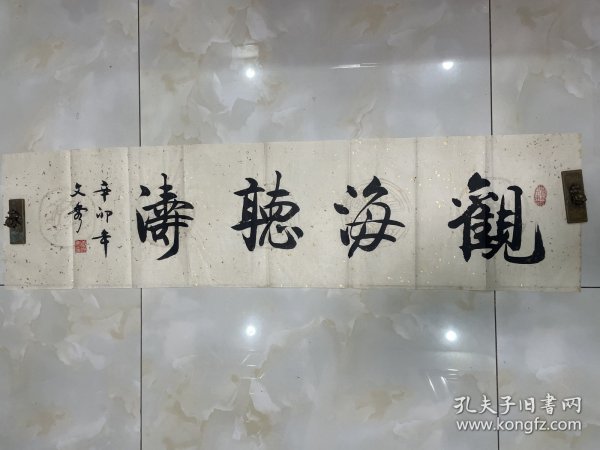 觀海聽濤
辛卯年
文秀
孔夫子旧書网
www.kongfz.com